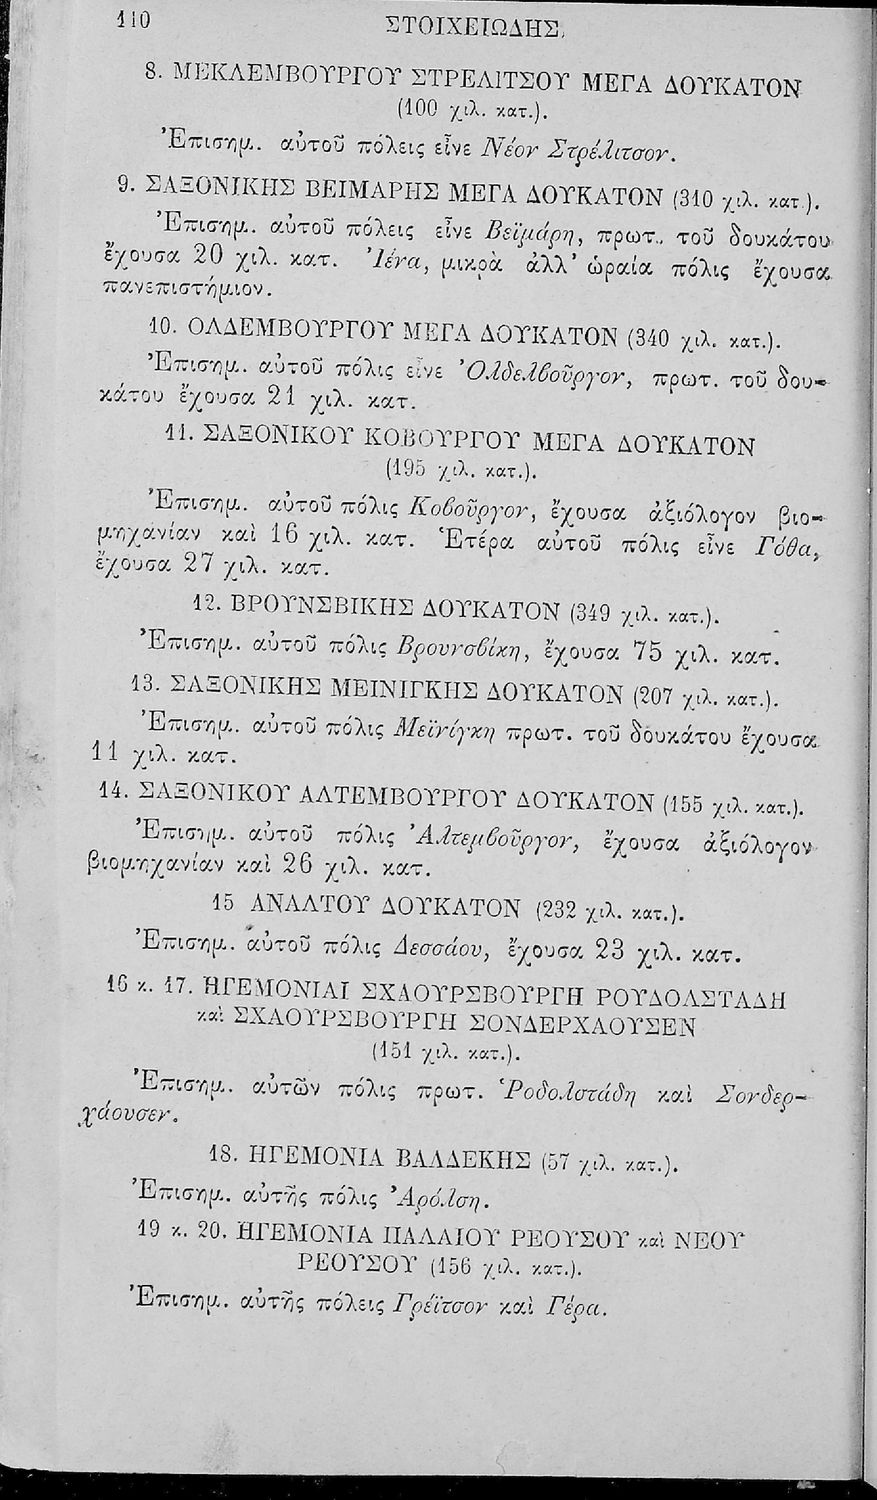 110 ΣΤΟΙΧΕΙΩΔΗΣ,
8. ΜΕΚΛΕΜΒΟΥΡΓΟΥ ΣΤΡΕΛΙΤΣΟΥ ΜΕΓΑ ΔΟΥΚΑΤΟΝ
(100 χιλ. κατ.).
Ἐπισημ. αὐτοῦ πόλεις εἶνε Νέον Στρέλιτσον.
9. ΣΑΞΟΝΙΚΗΣ ΒΕΙΜΑΡΗΣ ΜΕΓΑ ΔΟΥΚΑΤΟΝ (310 χιλ. κατ.).
Ἐπισημ. αὐτοῦ πόλεις εἶνε Βεϊμάρη, πρωτ. τοῦ δουκάτου
ἔχουσα 20 χιλ. κατ. Ἰένα, μικρὰ ἀλλ' ὡραία πόλις ἔχουσα
πανεπιστήμιον.
10. ΟΛΔΕΜΒΟΥΡΓΟΥ ΜΕΓΑ ΔΟΥΚΑΤΟΝ (340 χιλ. κατ.).
Ἐπισημ. αὐτοῦ πόλις εἶνε Ὀλδελβοῦργον, πρωτ. τοῦ δου-
κάτου ἔχουσα 21 χιλ. κατ.
11. ΣΑΞΟΝΙΚΟΥ ΚΟΒΟΥΡΓΟΥ ΜΕΓΑ ΔΟΥΚΑΤΟΝ
(195 χιλ. κατ.).
Ἐπισημ. αὐτοῦ πόλις Κοβοῦργον, ἔχουσα ἀξιόλογον βιο-
μηχανίαν καὶ 16 χιλ. κατ. Ἑτέρα αὐτοῦ πόλις εἶνε Γόθα,
ἔχουσα 27 χιλ. κατ.
12. ΒΡΟΥΝΣΒΙΚΗΣ ΔΟΥΚΑΤΟΝ (349 χιλ. κατ.).
Ἐπισημ. αὐτοῦ πόλις Βρουνσβίκη, ἔχουσα 75 χιλ. κατ.
13. ΣΑΞΟΝΙΚΗΣ ΜΕΙΝΙΓΚΗΣ ΔΟΥΚΑΤΟΝ (207 χιλ. κατ.).
Ἐπισημ. αὐτοῦ πόλις Μεϊνίγκη πρωτ. τοῦ δουκάτου ἔχουσα
11 χιλ. κατ.
14. ΣΑΞΟΝΙΚΟΥ ΑΛΤΕΜΒΟΥΡΓΟΥ ΔΟΥΚΑΤΟΝ (155 χιλ. κατ.).
Ἐπισημ. αὐτοῦ πόλις Ἀλτεμβοῦργον, ἔχουσα ἀξιόλογον
βιομηχανίαν καὶ 26 χιλ. κατ.
15 ΑΝΑΛΤΟΥ ΔΟΥΚΑΤΟΝ (232 χιλ. κατ.).
Ἐπισημ. αὐτοῦ πόλις Δεσσάου, ἔχουσα 23 χιλ. κατ.
16 κ. 17. ΗΓΕΜΟΝΙΑΙ ΣΧΑΟΥΡΣΒΟΥΡΓΗ ΡΟΥΔΟΛΣΤΑΔΗ
καὶ ΣΧΑΟΥΡΣΒΟΥΡΓΗ ΣΟΝΔΕΡΧΑΟΥΣΕΝ
(151 χιλ. κατ.).
Ἐπισημ. αὐτῶν πόλις πρωτ. Ῥοδολστάδη καὶ Σονδερ-
χάουσεν.
18. ΗΓΕΜΟΝΙΑ ΒΑΛΔΕΚΗΣ (57 χιλ. κατ.).
Ἐπισημ. αὐτῆς πόλις Ἀρόλση.
19 κ. 20. ΗΓΕΜΟΝΙΑ ΠΑΛΑΙΟΥ ΡΕΟΥΣΟΥ καὶ ΝΕΟΥ
ΡΕΟΥΣΟΥ (156 χιλ. κατ.).
Ἐπισημ. αὐτῆς πόλεις Γρέϊτσον καὶ Γέρα.